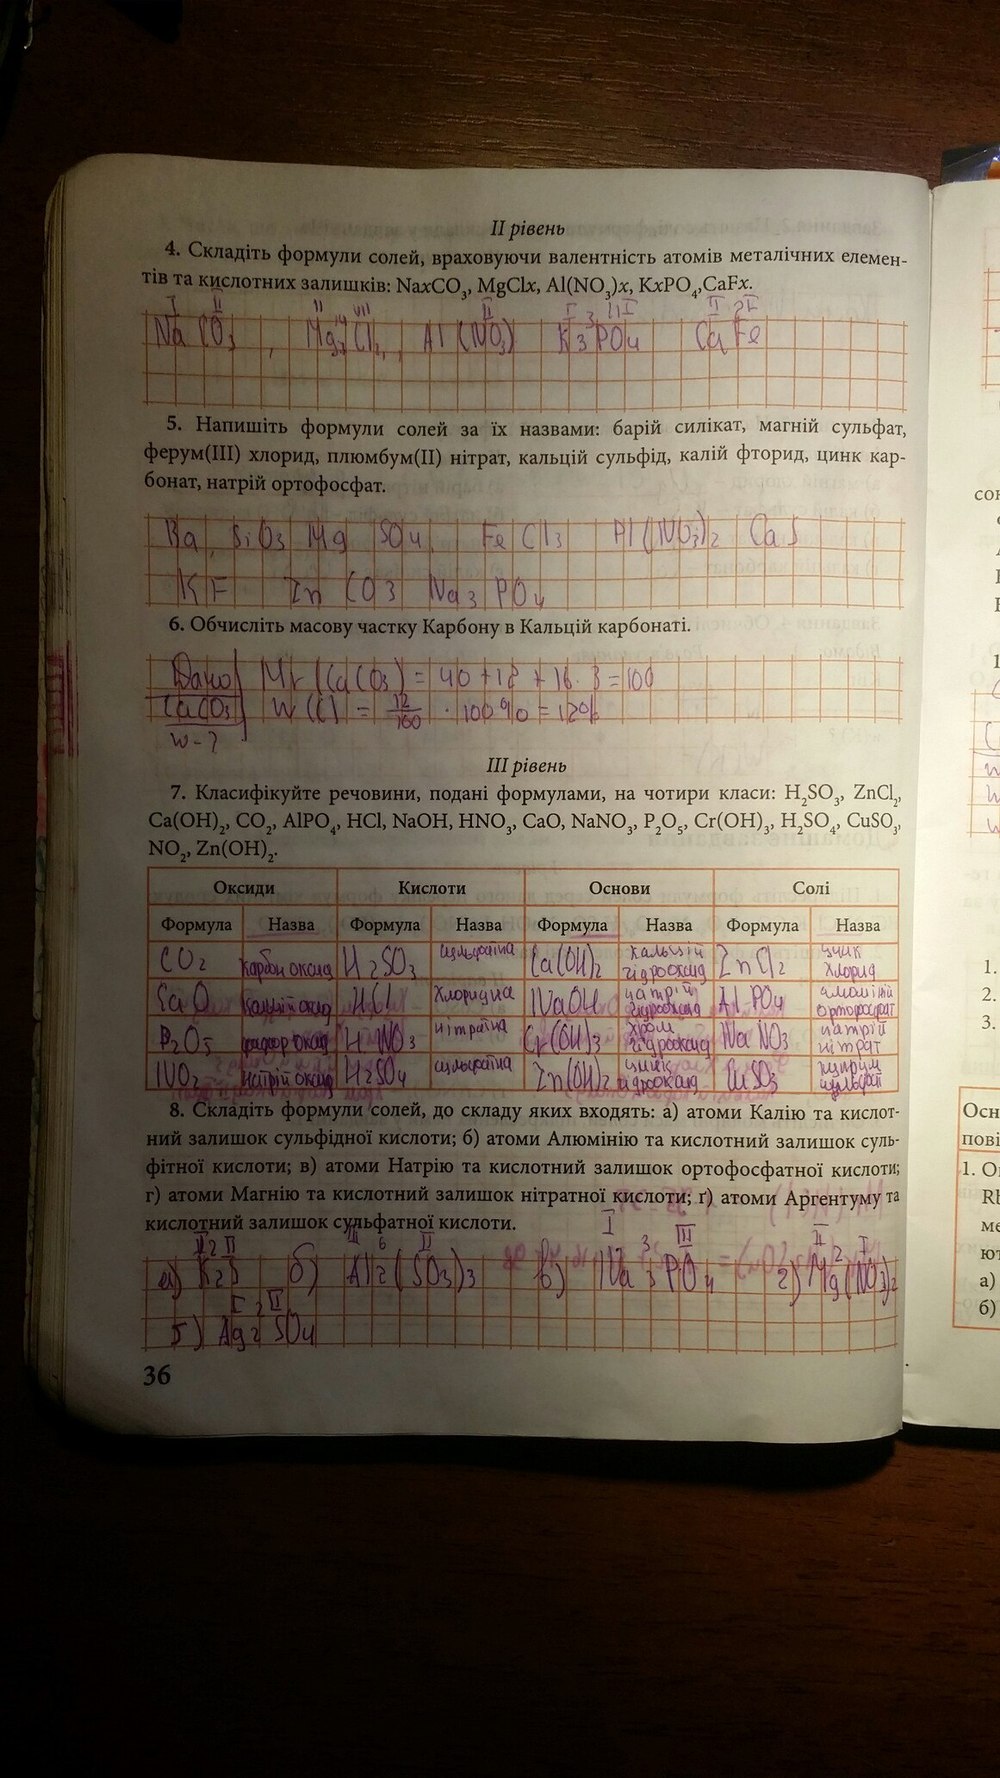 II рівень
4. Складіть формули солей, враховуючи валентність атомів металічних елемен-
тів та кислотних залишків: NaxCO₃, MgClx, Al(NO₃)x, KxPO₄,CaFx.
I II II I 3 III II 2 I
Na CO₃ , Mg Cl₂, Al (NO₃) K₃PO₄ Ca Fe
5. Напишіть формули солей за їх назвами: барій силікат, магній сульфат,
ферум(III) хлорид, плюмбум(II) нітрат, кальцій сульфід, калій фторид, цинк кар-
бонат, натрій ортофосфат.
Ba, SiO₃ Mg SO₄, Fe Cl₃ Pl(NO₃)₂ CaS
KF Zn CO₃ Na₃ PO₄
6. Обчисліть масову частку Карбону в Кальцій карбонаті.
Дано Mr (CaCO₃) = 40 + 12 + 16 · 3 = 100
CaCO₃ W (C) = 12/100 · 100% = 12%
W - ?
III рівень
7. Класифікуйте речовини, подані формулами, на чотири класи: H₂SO₃, ZnCl₂,
Ca(OH)₂, CO₂, AlPO₄, HCl, NaOH, HNO₃, CaO, NaNO₃, P₂O₅, Cr(OH)₃, H₂SO₄, CuSO₃,
NO₂, Zn(OH)₂.
Оксиди Кислоти Основи Солі
Формула Назва Формула Назва Формула Назва Формула Назва
CO₂ карбон оксид H₂SO₃ сульфатна Ca(OH)₂ кальцій гідрооксид ZnCl₂ цинк хлорид
CaO кальцій оксид HCl хлоридна NaOH натрій гідрооксид Al PO₄ алюміній ортофосфат
P₂O₅ оксид H NO₃ нітратна Cr(OH)₃ хром гідрооксид Na NO₃ натрій нітрат
NO₂ натрій оксид H₂SO₄ сульфатна Zn(OH)₂ цинк гідрооксид CuSO₃ купрум сульфат
8. Складіть формули солей, до складу яких входять: а) атоми Калію та кислот-
ний залишок сульфідної кислоти; б) атоми Алюмінію та кислотний залишок суль-
фітної кислоти; в) атоми Натрію та кислотний залишок ортофосфатної кислоти;
г) атоми Магнію та кислотний залишок нітратної кислоти; ґ) атоми Аргентуму та
кислотний залишок сульфатної кислоти.
2 II III 6 II I 3 III II 2 I
а) K₂S б) Al₂(SO₃)₃ в) Na₃PO₄ г) Mg(NO₃)₂
I 2 II
ґ) Ag₂ SO₄
36
сок
1.
2.
3.
Осн
пові
1. О
Rb
ме
ют
а)
б)